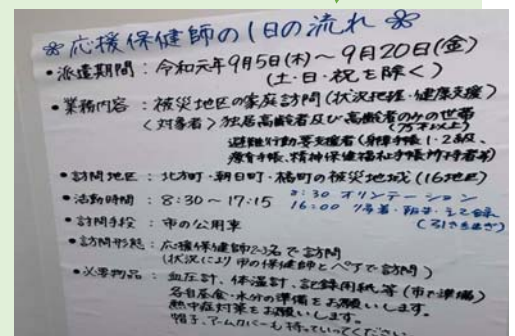 ❀応援保健師の1日の流れ❀
・派遣期間：令和元年9月5日(木)～9月20日(金)
(土・日・祝を除く)
・業務内容：被災地区の家庭訪問(状況把握・健康支援)
〈対象者〉独居高齢者及び高齢者のみの世帯
避難行動要支援者(身障手帳1・2級、
療育手帳、精神保健福祉手帳所持者等)
・訪問地区：北方町・朝日町・橘町の被災地域(16地区)
・活動時間：8:30～17:15
8:30 オリンテーション
16:00 帰着・報告・記録
(引き継ぎ)
・訪問手段：市の公用車
・訪問形態：応援保健師2~3名で訪問
(状況により市の保健師とペアで訪問)
・必要物品：血圧計、体温計、記録用紙等(市で準備)
各自昼食・水分の準備をお願いします。
熱中症対策をお願いします。
帽子、アームカバーも持っていってください。